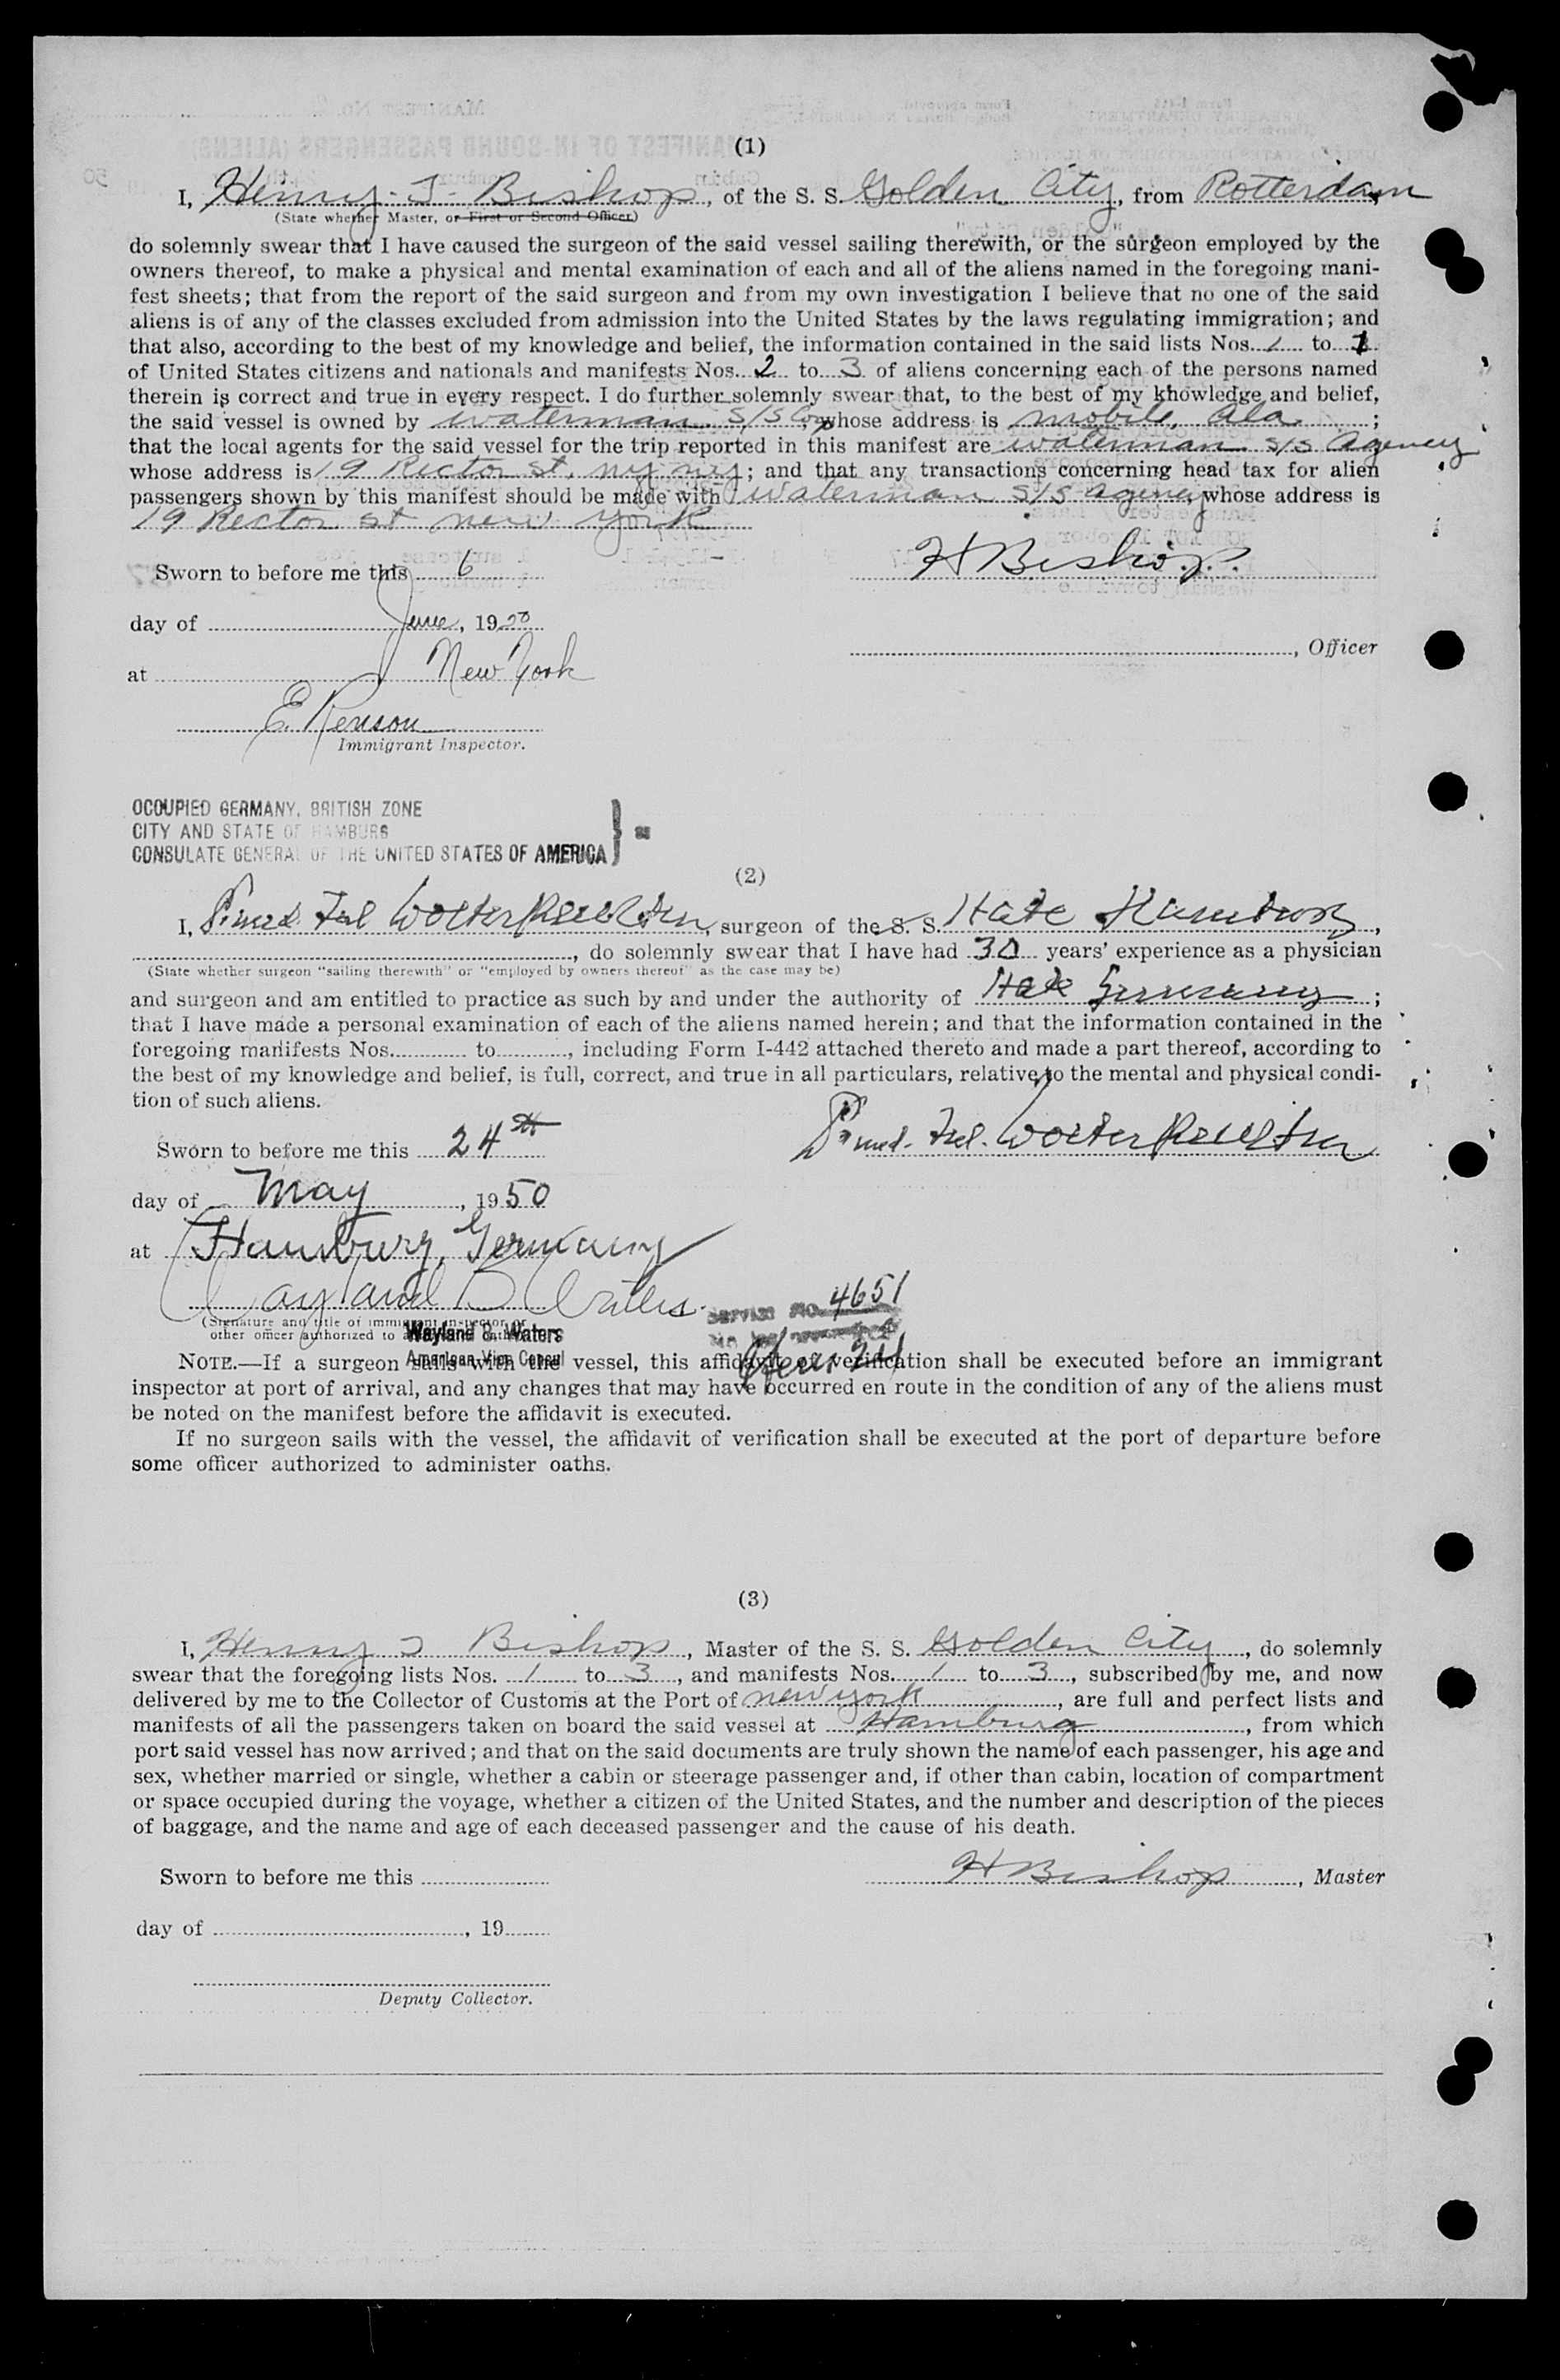 (1)
I, Henry J Bishop, of the S. S. Golden City, from Rotterdam
(State whether Master, or First or Second Officer)
do solemnly swear that I have caused the surgeon of the said vessel sailing therewith, or the surgeon employed by the
owners thereof, to make a physical and mental examination of each and all of the aliens named in the foregoing mani-
fest sheets; that from the report of the said surgeon and from my own investigation I believe that no one of the said
aliens is of any of the classes excluded from admission into the United States by the laws regulating immigration; and
that also, according to the best of my knowledge and belief, the information contained in the said lists Nos. 1 to 1
of United States citizens and nationals and manifests Nos. 2 to 3 of aliens concerning each of the persons named
therein is correct and true in every respect. I do further solemnly swear that, to the best of my knowledge and belief,
the said vessel is owned by Waterman S/S Corp, whose address is Mobile, Ala. ;
that the local agents for the said vessel for the trip reported in this manifest are Waterman S/S Agency
whose address is 19 Rector St, NY NY; and that any transactions concerning head tax for alien
passengers shown by this manifest should be made with Waterman S/S Agency whose address is
19 Rector St New York
Sworn to before me this 6
H Bishop.
day of June, 1950
, Officer
at New York
E. Renson
Immigrant Inspector.
OCCUPIED GERMANY, BRITISH ZONE
CITY AND STATE OF HAMBURG
CONSULATE GENERAL OF THE UNITED STATES OF AMERICA } ss
(2)
I, , surgeon of the S. S. State Hamburg,
, do solemnly swear that I have had 30 years' experience as a physician
(State whether surgeon "sailing therewith" or "employed by owners thereof" as the case may be)
and surgeon and am entitled to practice as such by and under the authority of State Germany ;
that I have made a personal examination of each of the aliens named herein; and that the information contained in the
foregoing manifests Nos. to , including Form I-442 attached thereto and made a part thereof, according to
the best of my knowledge and belief, is full, correct, and true in all particulars, relative to the mental and physical condi-
tion of such aliens.
Sworn to before me this 24th
day of May, 1950
at Hamburg, Germany
Wayland B. Waters
(Signature and title of immigrant inspector or
other officer authorized to
Wayland B. Waters
American Vice Consul
Service No. 4651
NOTE.—If a surgeon sails with the vessel, this affidavit of verification shall be executed before an immigrant
inspector at port of arrival, and any changes that may have occurred en route in the condition of any of the aliens must
be noted on the manifest before the affidavit is executed.
If no surgeon sails with the vessel, the affidavit of verification shall be executed at the port of departure before
some officer authorized to administer oaths.
(3)
I, Henry J Bishop, Master of the S. S. Golden City, do solemnly
swear that the foregoing lists Nos. 1 to 3, and manifests Nos. 1 to 3, subscribed by me, and now
delivered by me to the Collector of Customs at the Port of New York, are full and perfect lists and
manifests of all the passengers taken on board the said vessel at Hamburg, from which
port said vessel has now arrived; and that on the said documents are truly shown the name of each passenger, his age and
sex, whether married or single, whether a cabin or steerage passenger and, if other than cabin, location of compartment
or space occupied during the voyage, whether a citizen of the United States, and the number and description of the pieces
of baggage, and the name and age of each deceased passenger and the cause of his death.
Sworn to before me this
H Bishop, Master
day of , 19
Deputy Collector.